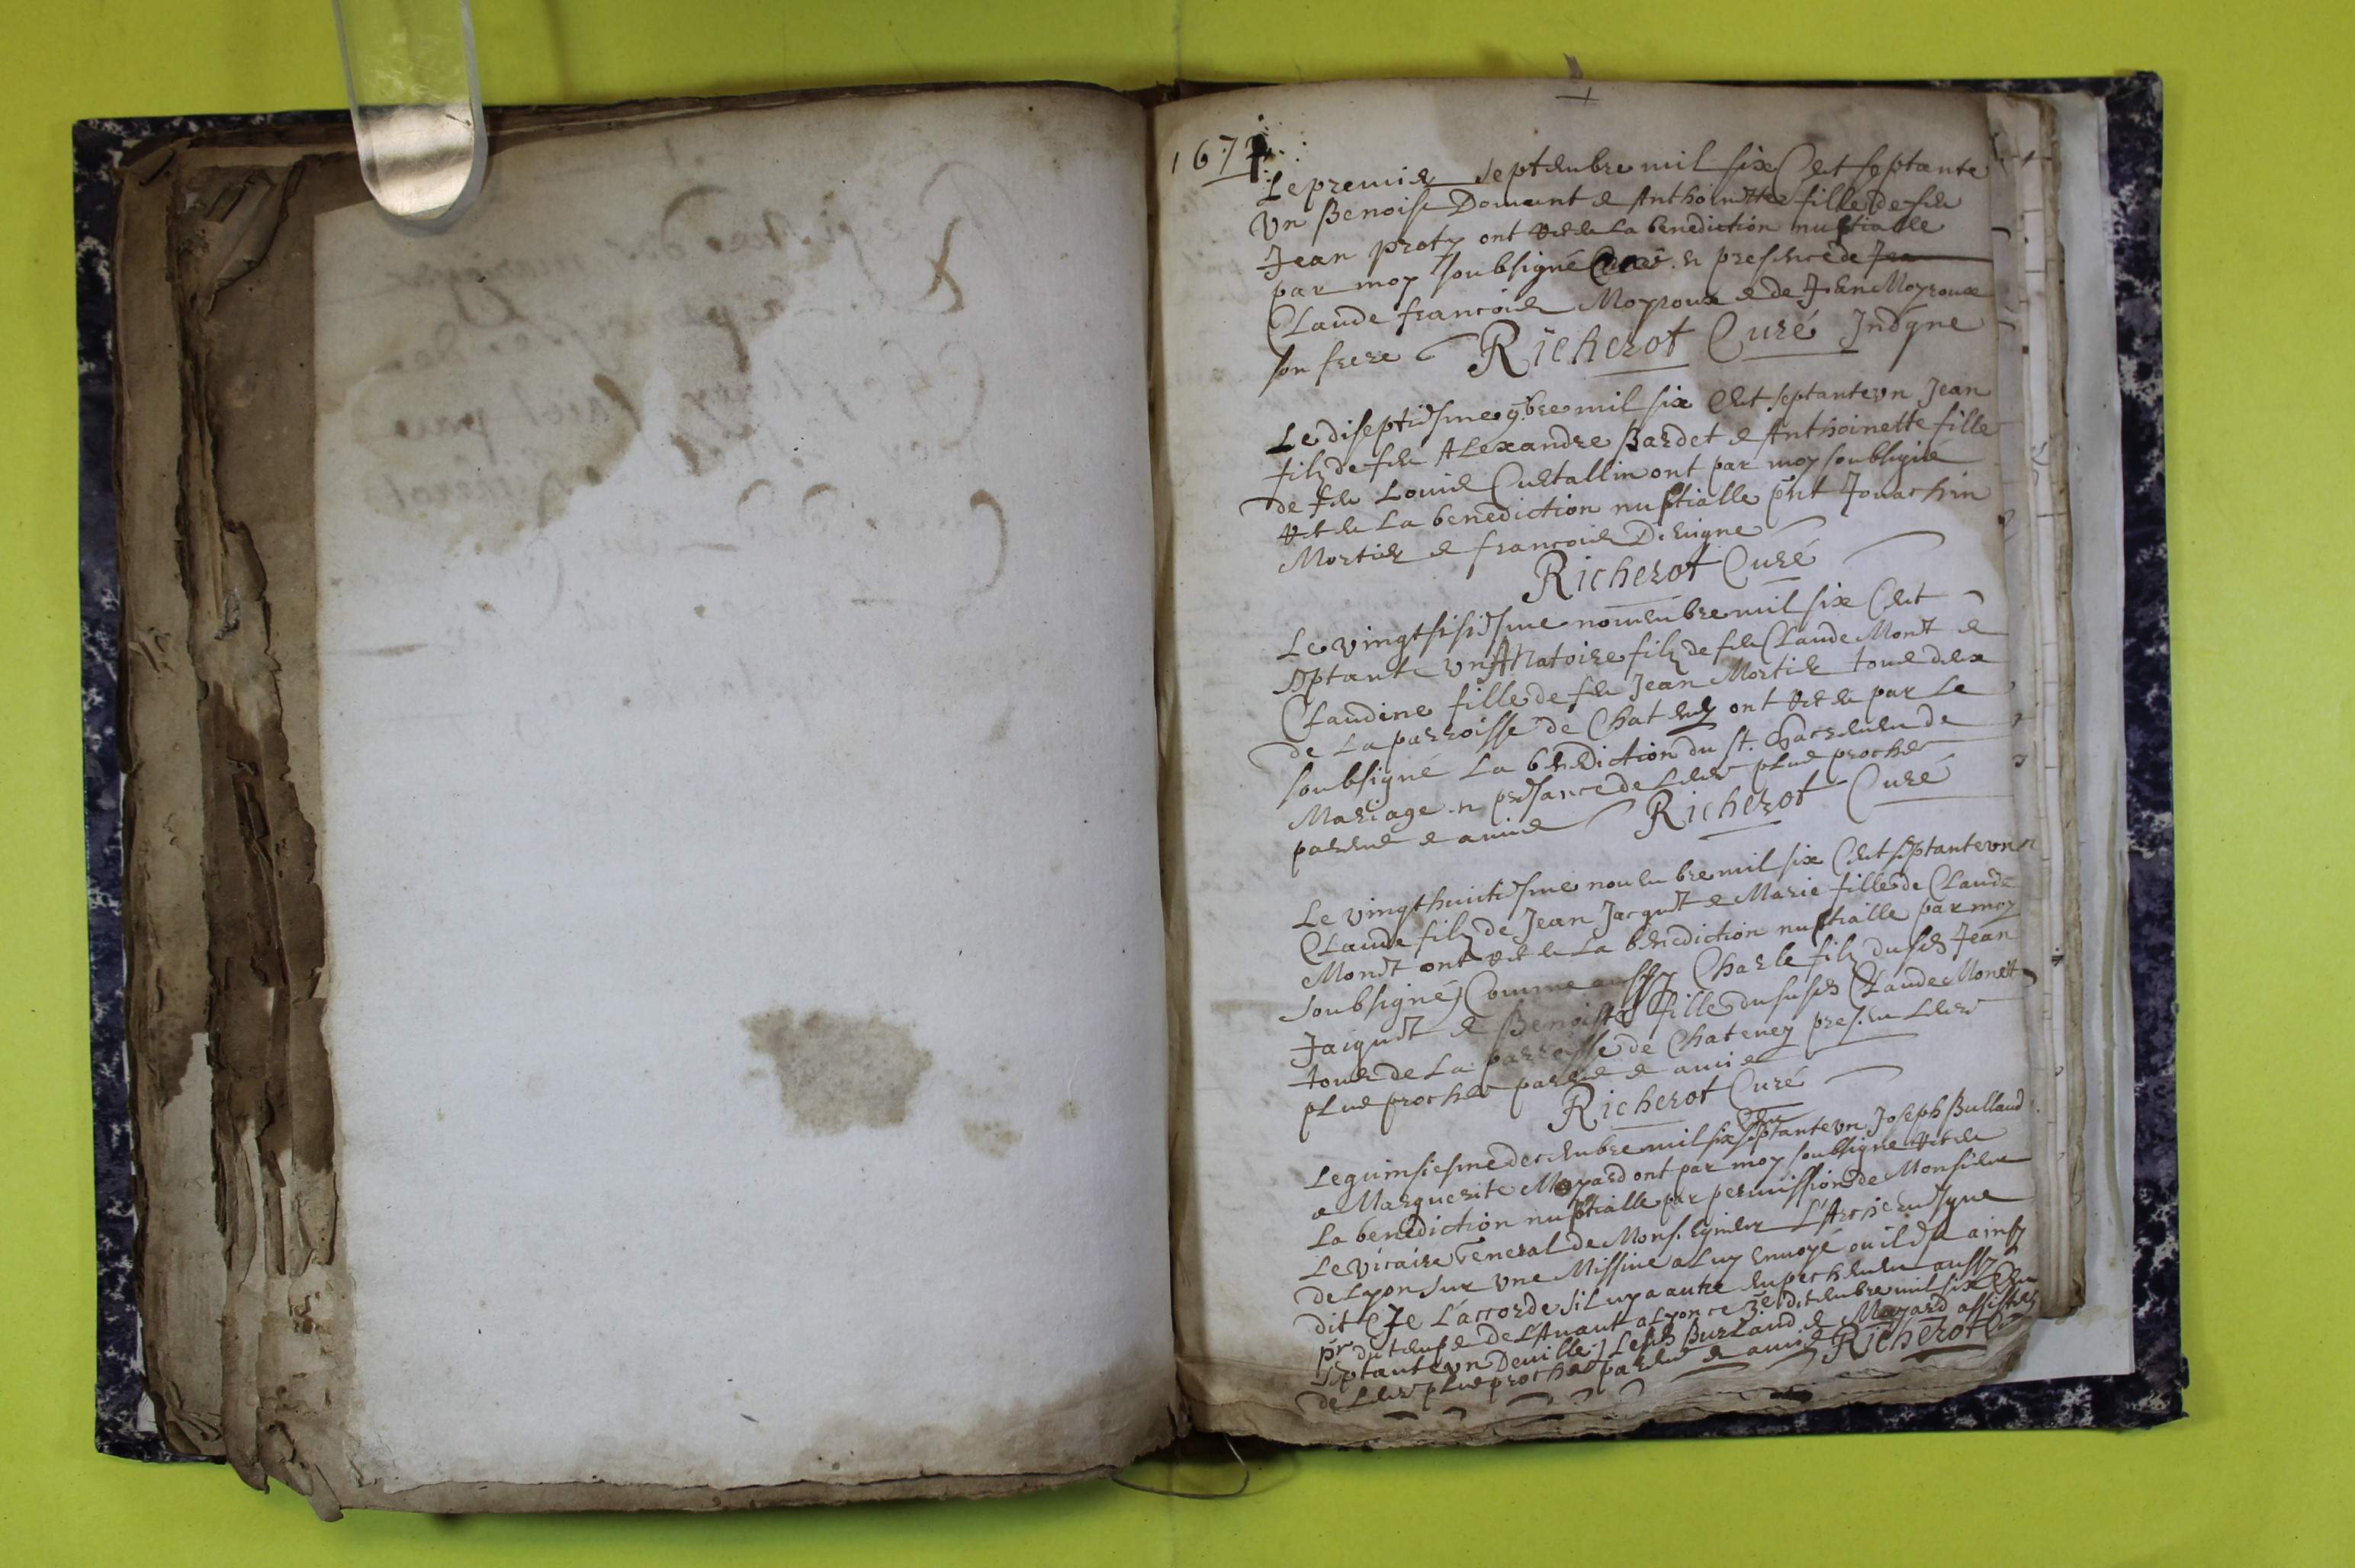 1671
Le premier septembre mil six Cent septante
un Benoist Domant & Anthoinette fille de feu
Jean Proty ont receu la benediction nuptialle
par moy soubsigné Curé en presence de Jea
Claude francois Moyroux & de Jean Moyroux
son frere Richerot Curé Indigne
Le diseptiesme 9.bre mil six Cent septante un Jean
filz de feu Alexandre Bardet & Anthoinette fille
de feu Louis Cuetallin ont par moy soubsigné
receu la benediction nuptialle pnt Jouachin
Mortier & francois Diuigne
Richerot Curé
Le vingt sisiesme nouembre mil six Cent
septante un Anatoire filz de feu Claude Monet &
Claudine fille de feu Jean Mortier tous deux
de la parroisse de Chateney ont receu par le
soubsigné la benediction du St. Sacrement de
Mariage en presance de leurs plus proches
parens & amis Richerot Curé
Le vingt huictiesme nouembre mil six Cent septante un
Claude filz de Jean Jacquet & Marie fille de Claude
Monet ont receu la benediction nuptialle par moy
soubsigné, Comme aussy Charle filz dusd Jean
Jacquet & Benoiste fille dususd Claude Monet
tous de la parroisse de Chateney presens leurs
plus proches parens & amis
Richerot Curé
Le quinsiesme decembre mil six Cent septante un Joseph Bulland
& Marguerite Moyard ont par moy soubsigné receu
La benediction nuptialle par permission de Monsieur
Le vicaire General de Monseigneur L'Archeuesque
de Lyon sur une Missiue a luy enuoyé ou il est ainsy
dit (Je L'accorde s'il ny a autre empechement aussy
pr du temps de L'Auant a Lyon ce 3.e decembre mil six Cent
septante un Deuille) Lesd Burland & Moyard assistez
de leurs plus proches parens & amis Richerot